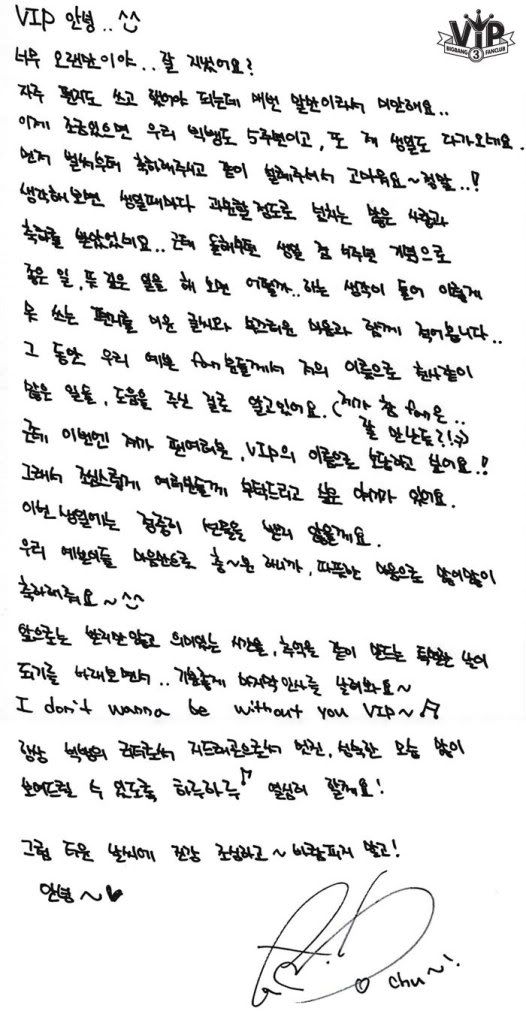 VIP 안녕..^^
ViP
BIGBANG 3 FANCLUB
너무 오랜만이야..잘 지냈어요?
자주 편지도 쓰고 했어야 되는데 매번 말만이라서 미안해요..
이제 조금있으면 우리 빅뱅도 5주년이고, 또 제 생일도 다가오네요.
먼저 벌써부터 축하해주시고 같이 설레주셔서 고마워요~정말..!
생각해보면 생일때마다 과분할정도로 넘치는 많은 사랑과
축하를 받았었네요..근데 올해부턴 생일 겸 5주년 기념으로
좋은 일, 뜻 깊은 일을 해 보면 어떨까..하는 생각이 들어 이렇게
못 쓰는 편지를 미운 글씨와 부끄러운 마음과 함께 적어봅니다..
그 동안 우리 예쁜 fan분들께서 저의 이름으로 천사같이
많은 일들, 도움을 주신 걸로 알고있어요. (제가 참 fan은..
잘 만난듯?!;)
근데 이번엔 제가 팬여러분, VIP의 이름으로 보답하고 싶어요!!
그래서 조심스럽게 여러분들께 부탁드리고 싶은 이야기가 있어요.
이번 생일에는 정중히 선물을 받지 않을게요.
우리 예쁜이들 마음만으로 충~분 하니까, 따뜻한 마음으로 많이많이
축하해줘요~^^
앞으로는 받지만않고 의미있는 시간을, 추억을 같이 만드는 특별한 날이
되기를 바래보면서..기분좋게 마지막인사를 날려봐요~
I don't wanna be without you VIP~♬
항상 빅뱅의 리더로써 지드래곤으로서 멋진, 성숙한 모습 많이
보여드릴 수 있도록 하루하루♪ 열심히 할게요!
그럼 더운 날씨에 건강 조심하고~바람피지 말고!
안녕~♥
chu~!